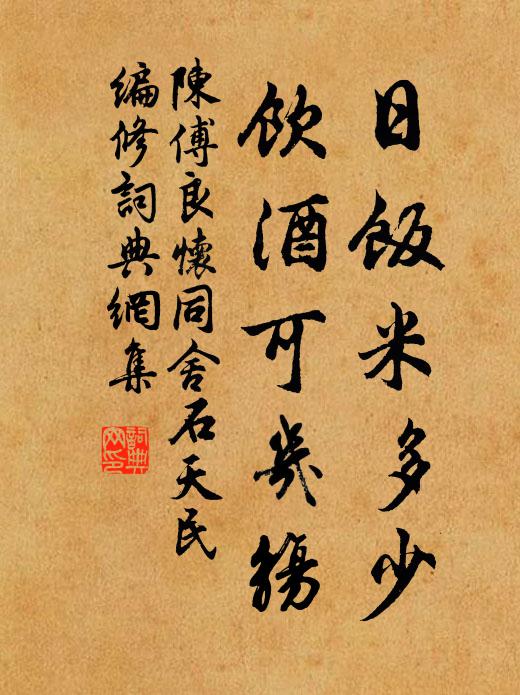 日飯米多少
飲酒可幾觴
陳傅良懷同舍石天民
編修詞典網集
詞典网印